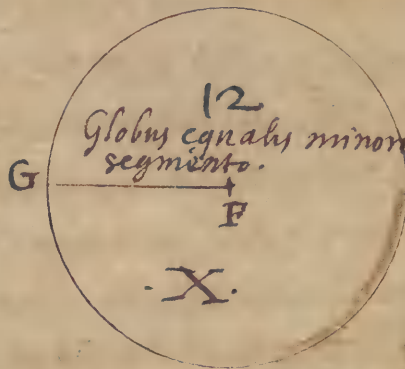 12
Globus equalis minori
segmento.
G
F
.X.